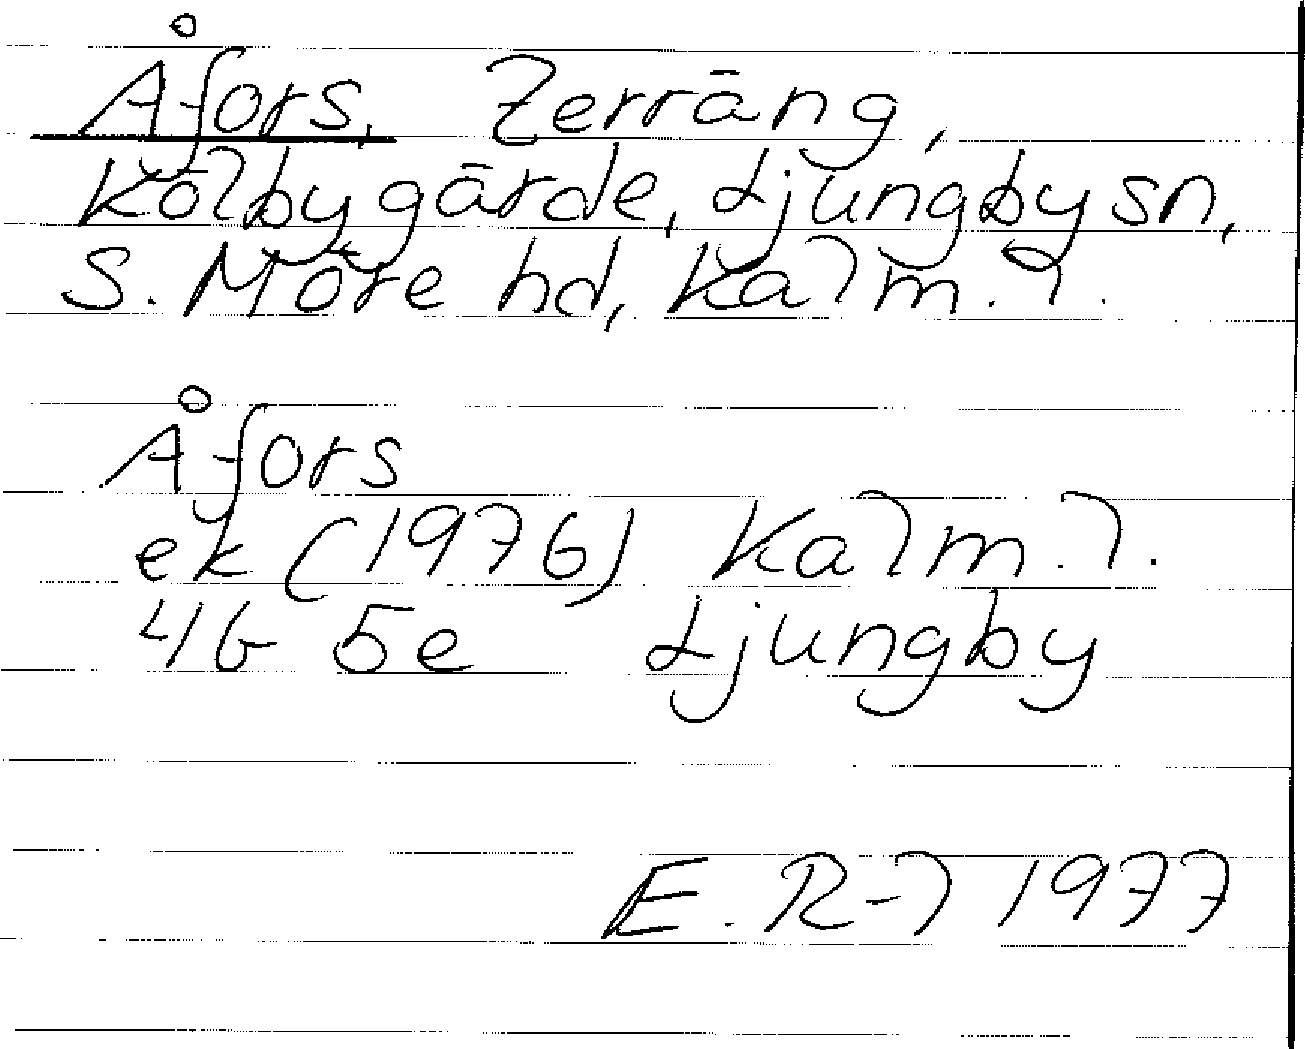 Åfors, Terräng,
Kölbygärde, Ljungby sn,
S. Möre hd, Kalm. l.
Åfors
ek (1976) Kalm. l.
4G 5e Ljungby
E. R-l 1977